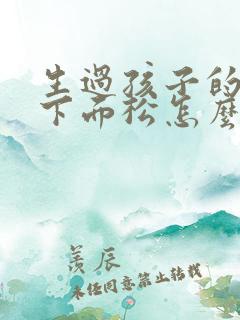 生過孩子的
下面松怎麼
羨辰
未任同意禁止转载